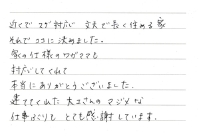 近くで スグ 対応 丈夫で長く住める家
それで ココに 決めました。
家の仕様のワガママも
対応してくれて
本当にありがとうございました。
建ててくれた 大工さんの マジメな
仕事ぶりも とても感謝しています。